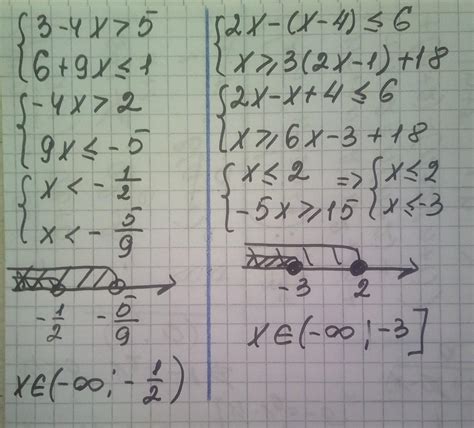 {3-4x>5
{6+9x≤1
{-4x>2
{9x≤-5
{x<-1/2
{x<-5/9
-1/2 -5/9
x∈(-∞;-1/2)
{2x-(x-4)≤6
{x≥3(2x-1)+18
{2x-x+4≤6
{x≥6x-3+18
{x≤2 => {x≤2
{-5x≥15 {x≤-3
-3 2
x∈(-∞;-3]